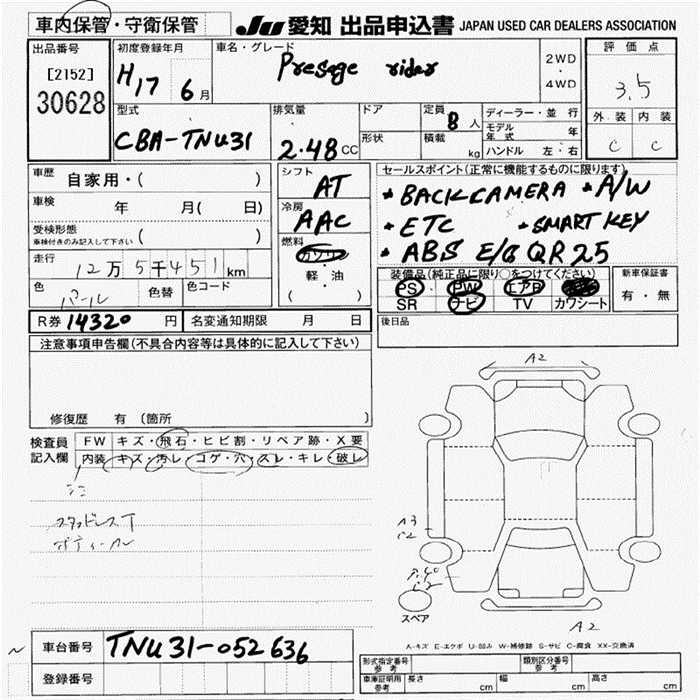 車内保管・守衛保管 JU 愛知 出品申込書 JAPAN USED CAR DEALERS ASSOCIATION
出品番号 [2152] 30628
初度登録年月 H17 6月
車名・グレード Presage rider
2WD ・ 4WD
評価点 3.5
外装 内装
C C
型式 CBA-TNU31
排気量 2.48 CC
ドア
形状
定員 8 人
積載 kg
ディーラー・並行
モデル年式 年
ハンドル 左・右
車歴 自家用・( )
車検 年 月( 日)
受検形態 ( )
車検付きのみ記入して下さい
走行 12万5千451km
色 パール 色替 色コード
シフト AT
冷房 AAC
燃料 ガソリン
軽・油
( )
セールスポイント(正常に機能するものに限ります)
* BACK CAMERA * A/W
* ETC * SMART KEY
* ABS E/G QR25
装備品(純正品に限り○をつけてください)
PS PW エアB
SR ナビ TV カワシート
新車保証書
有・無
R券 14320 円 名変通知期限 月 日
後日品
注意事項申告欄(不具合内容等は具体的に記入して下さい)
修復歴 有 (箇所 )
検査員記入欄
FW キズ・飛石・ヒビ割・リペア跡・X要
内装 キズ・汚レ・コゲ・穴・スレ・キレ・破レ
スタッドレスT
A2
A3
C2
C2
スペア
A2
A-キズ E-エクボ U-凹み W-補修跡 S-サビ C-腐食 XX-交換済
車台番号 TNU31-052636
登録番号
形式指定番号 参考 類別区分番号 参考
車庫証明用 参考 長さ cm 幅 cm 高さ cm